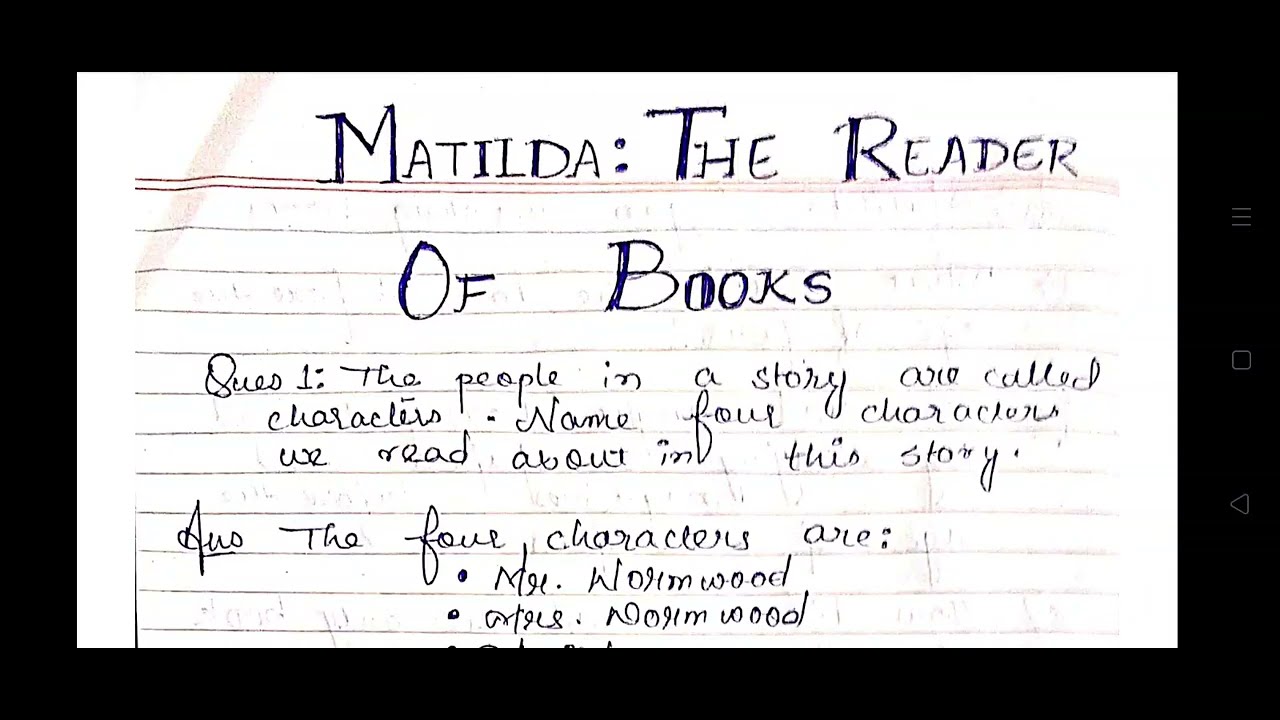 MATILDA: THE READER
OF BOOKS
Ques 1: The people in a story are called
characters. Name four characters
we read about in this story.
Ans The four characters are:
• Mr. Wormwood
• Mrs. Wormwood